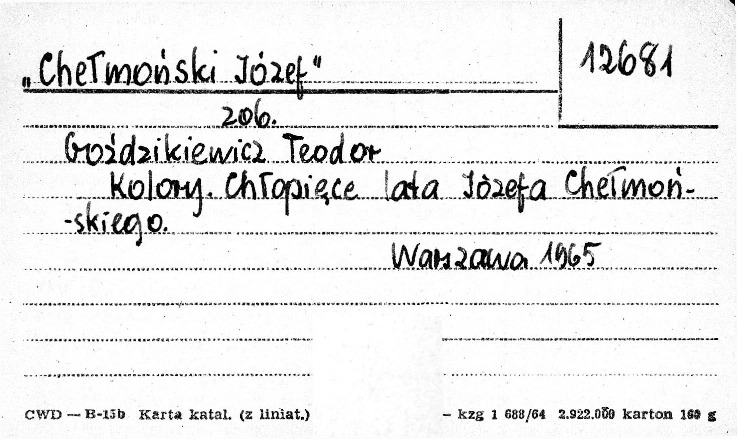 „Chełmoński Józef"
12681
206.
Goździkiewicz Teodor
Kolory. Chłopięce lata Józefa Chełmoń-
-skiego.
Warszawa 1965
CWD — B-15b Karta katal. (z liniat.) – kzg 1 688/64 2.922.000 karton 160 g